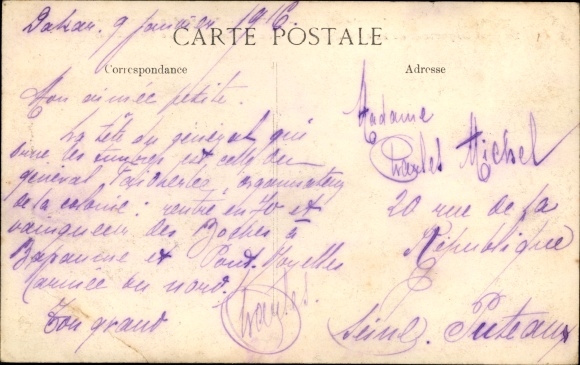 Dakar. 9 janvier 1916.
CARTE POSTALE
Correspondance
Mon aimée petite.
La tête du général qui
orne les timbres est celle du
général Faidherbe, organisateur
de la colonie: rentré en 70 et
vainqueur des Boches à
Bapaume et Pont-Noyelles
armée du nord.
Ton grand
Charles.
Adresse
Madame
Charles Michel
20 rue de la
République
Puteaux
Seine.